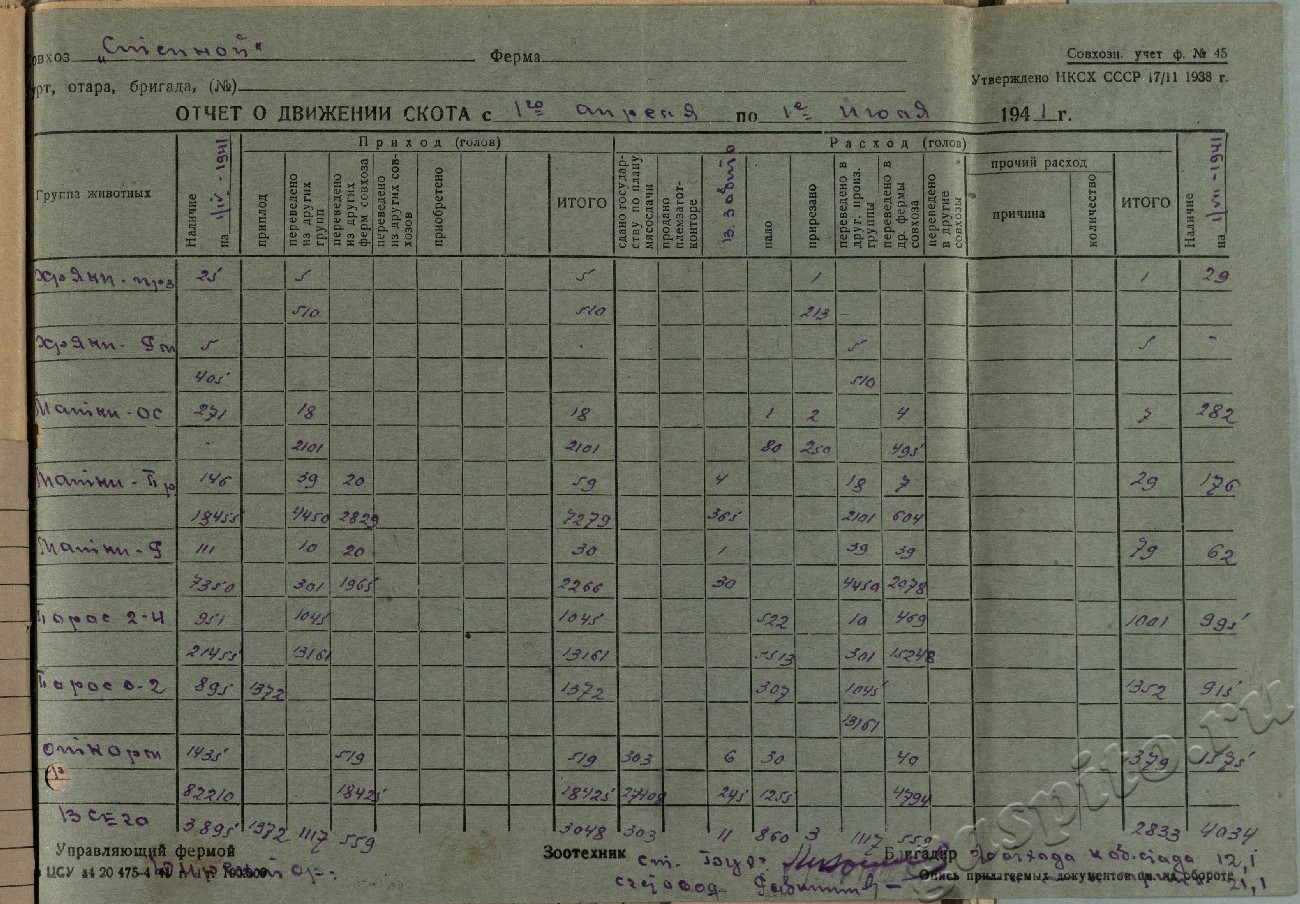 Совхоз „Степной“ Ферма Совхозн. учет ф. № 45
Гурт, отара, бригада, (№) Утверждено НКСХ СССР 17/11 1938 г.
ОТЧЕТ О ДВИЖЕНИИ СКОТА с 1го апреля по 1е июля 1941 г.
Группа животных
Наличие на 1/IV-1941
Приход (голов)
приплод
переведено из других групп
переведено из других ферм совхоза
переведено из других совхозов
приобретено
ИТОГО
Расход (голов)
сдано государству по плану мясосдачи
продано племзаготконторе
в. забито
пало
прирезано
переведено в друг. произ. группы
переведено в др. фермы совхоза
переведено в другие совхозы
прочий расход
причина
количество
ИТОГО
Наличие на 1/VII-1941
Хряки-произ 25 5 5 1 1 29
510 510 213
Хряки- 5 5 5 -
405 510
Матки-ос 271 18 18 1 2 4 7 282
2101 2101 80 250 495
Матки-Пр 146 39 20 59 4 18 7 29 176
18455 4450 2829 7279 365 2101 604
Матки- 111 10 20 30 1 39 39 79 62
7350 301 1965 2266 30 4450 2078
Порос 2-4 951 1045 1045 522 10 469 1001 995
21455 13161 13161 5513 301 15248
Порос 0-2 895 1372 1372 307 1045 1352 915
13161
Откорм 1435 519 519 303 6 30 40 379 1575
82210 18425 18425 27409 245 1255 4794
ВСЕГО 3895 1372 1117 559 3048 303 11 860 3 1117 559 2833 4034
Управляющий фермой Зоотехник ст. Бригадир 12,1
ЦСУ 20 475-4 Опись прилагаемых документов см. на обороте 21,1
gaspito.ru